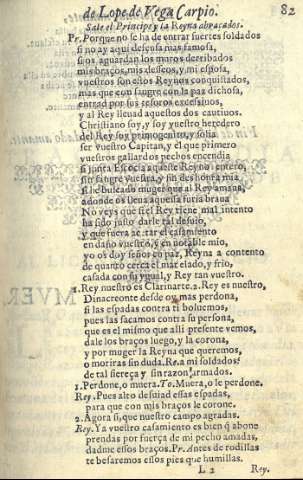 de Lope de Vega Carpio. 82
Sale el Principe y la Reyna abraçados.
Pr. Porque no se ha de entrar fuertes soldados
si no ay aqui defensa mas famosa,
si os aguardan los muros derribados
mis braços, mis desseos, y mi esposa,
vuestros son estos Reynos conquistados,
mas que con sangre con la paz dichosa,
entrad por sus tesoros excessiuos,
y al Rey lleuad aquestos dos cautiuos.
Christiano soy, y soy vuestro heredero
del Rey soy primogenito, y solia
ser vuestro Capitan, y el que primero
vuestros gallardos pechos encendia
si junta Escocia aqueste Reyno entero,
ser sangre vuestra, y sin deshonra mia,
si he buscado muger que al Rey amansa,
adonde os lleua aquessa furia braua
No veys que si el Rey tiene mal intento
ha sido justo darle tal desuio,
y que fuera acetar el casamiento
en daño vuestro, y en notable mio,
yo os doy señor en paz, Reyna a contento
de quanto cerca el mar elado, y frio,
casada con su ygual, y Rey tan vuestro.
1. Rey nuestro es Clarinarte. 2. Rey es nuestro,
Dinacreonte desde oy mas perdona,
si las espadas contra ti boluemos,
pues las sacamos contra su persona,
que es el mismo que alli presente vemos,
dale los braços luego, y la corona,
y por muger la Reyna que queremos,
o moriras sin duda. Re. a mi soldados?
de tal fiereça y sin razon armados.
1. Perdone, o muera. To. Muera, o le perdone.
Rey. Pues alto desuiad essas espadas,
para que con mis braços le corone.
2. Agora si, que nuestro campo agradas.
Rey. Ya vuestro casamiento es bien q̃ abone
prendas por fuerça de mi pecho amadas,
dadme essos braços. Pr. Antes de rodillas
te besaremos essos pies que humillas.
L 2 Rey.